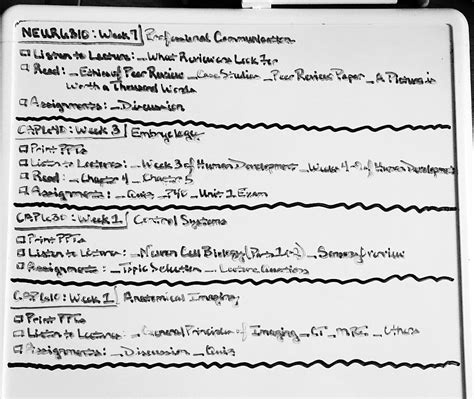 NEUR6310: Week 7 | Professional Communication
Listen to Lecture: _ What Reviewers Look For
Read: _ Ethics of Peer Review _ Case Studies _ Peer Review Paper _ A Picture is
Worth a Thousand Words
Assignments: _ Discussion
Week 3 | Embryology
Print PPTs
Listen to Lectures: _ Week 3 of Human Development _ Weeks 4-8 of Human Development
Read: _ Chapter 4 _ Chapter 5
Assignments: _ Quiz _ _ Unit 1 Exam
Week 1 | Control Systems
Print PPTs
Listen to Lecture: _ Neuron Cell Biology (Parts 1+2) _ Sensory review
Assignments: _ Topic Selection _ Lecture Questions
Week 1 | Anatomical Imaging
Print PPTs
Listen to Lectures: _ General Principles of Imaging _ CT _ MRI _ Others
Assignments: _ Discussion _ Quiz